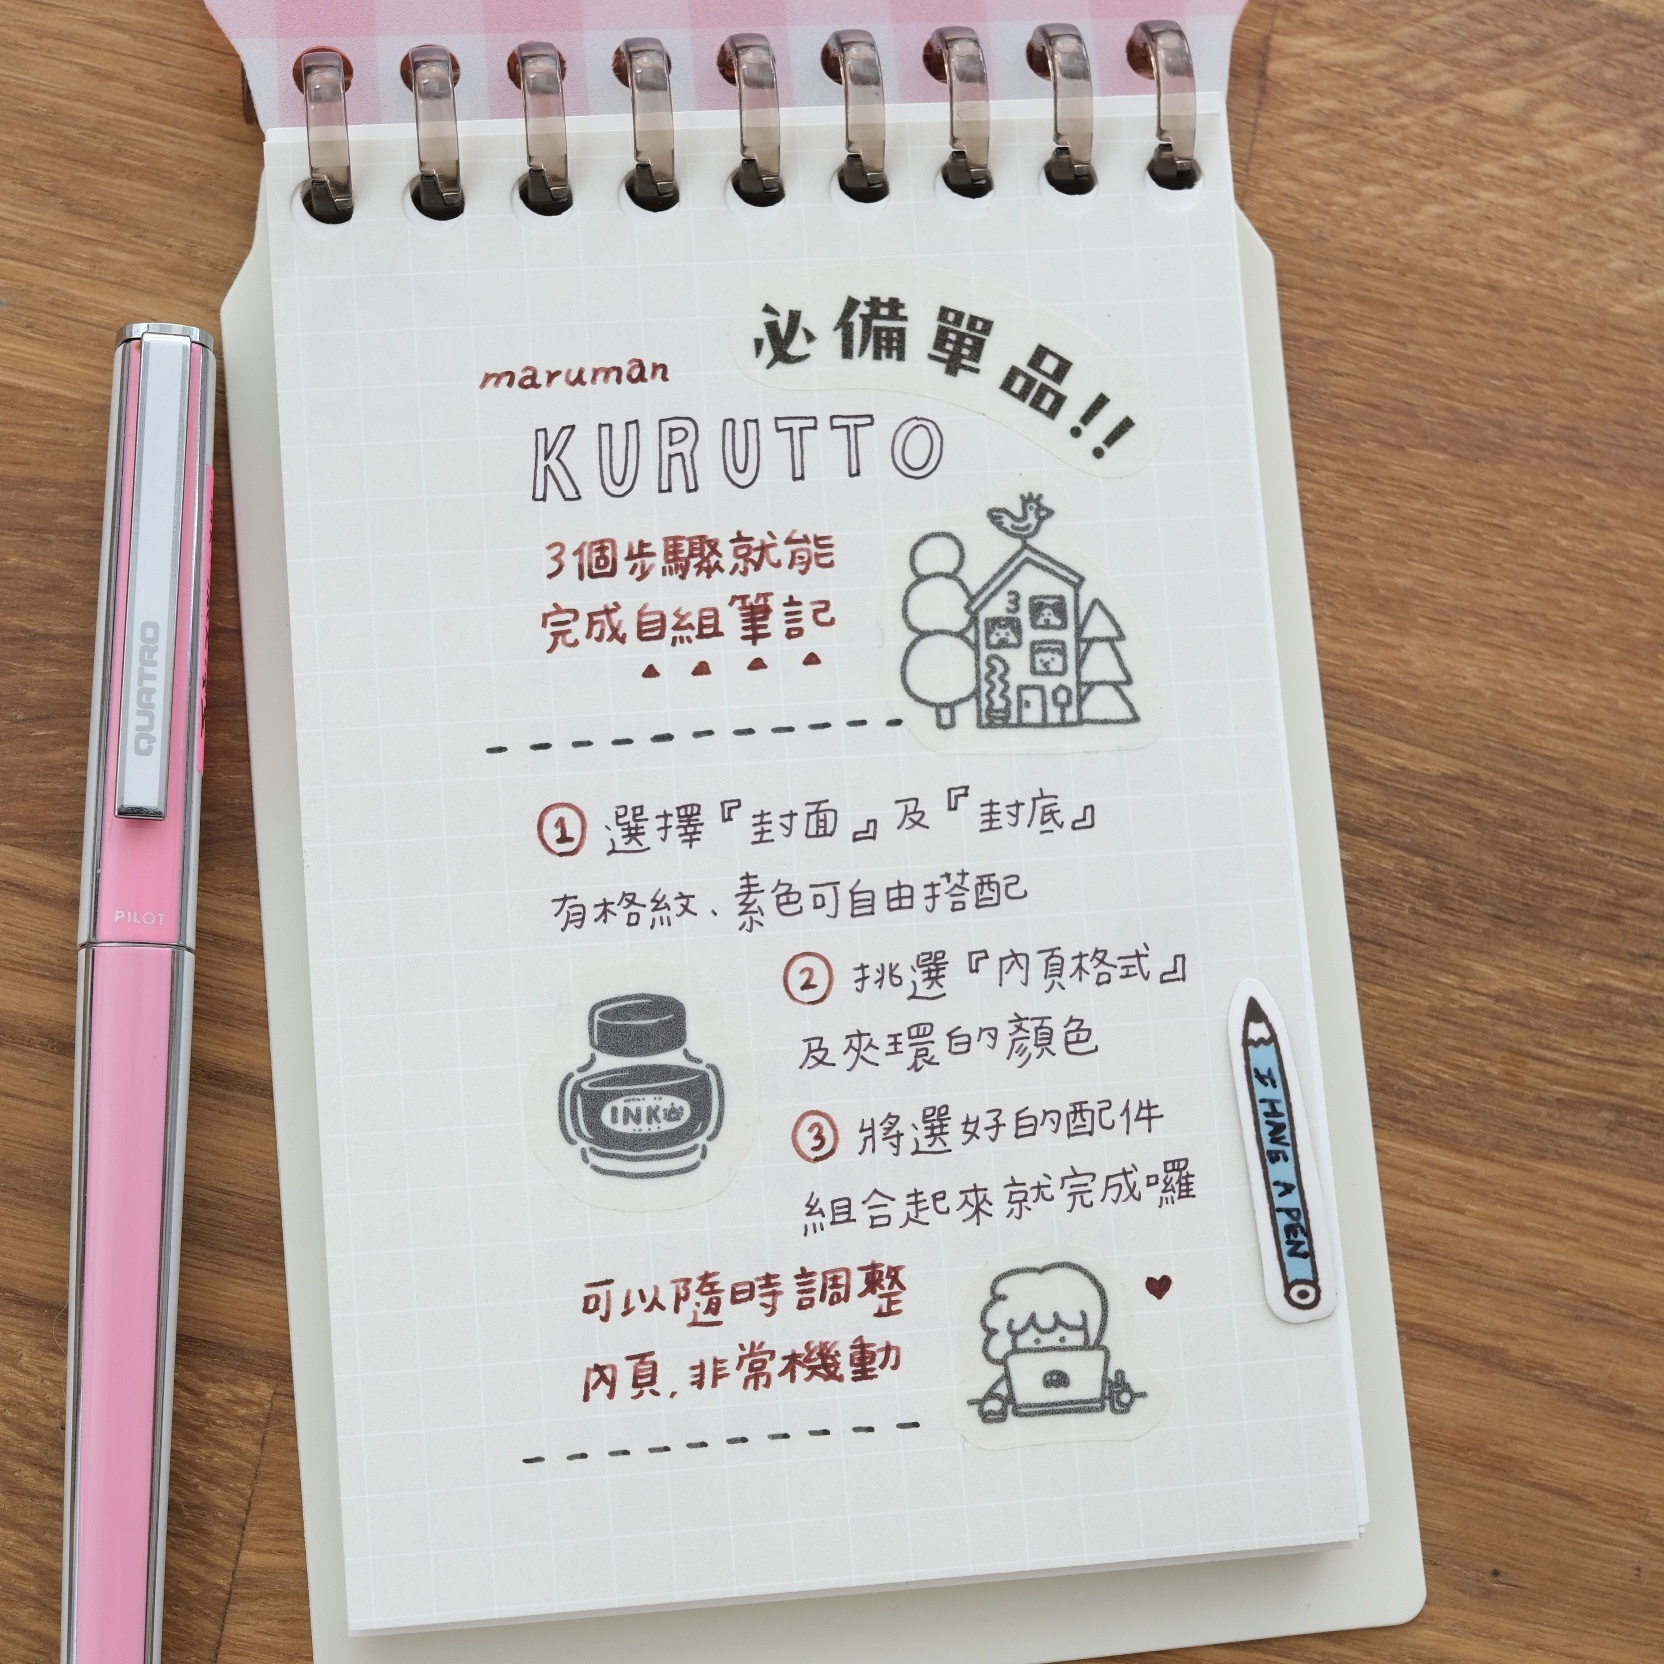 必備單品!!
maruman
KURUTTO
3個步驟就能
完成自組筆記
3
① 選擇『封面』及『封底』
有格紋、素色可自由搭配
② 挑選『內頁格式』
及夾環的顏色
INK
③ 將選好的配件
組合起來就完成囉
可以隨時調整
內頁,非常機動
I HAVE A PEN
QUATRO
PILOT